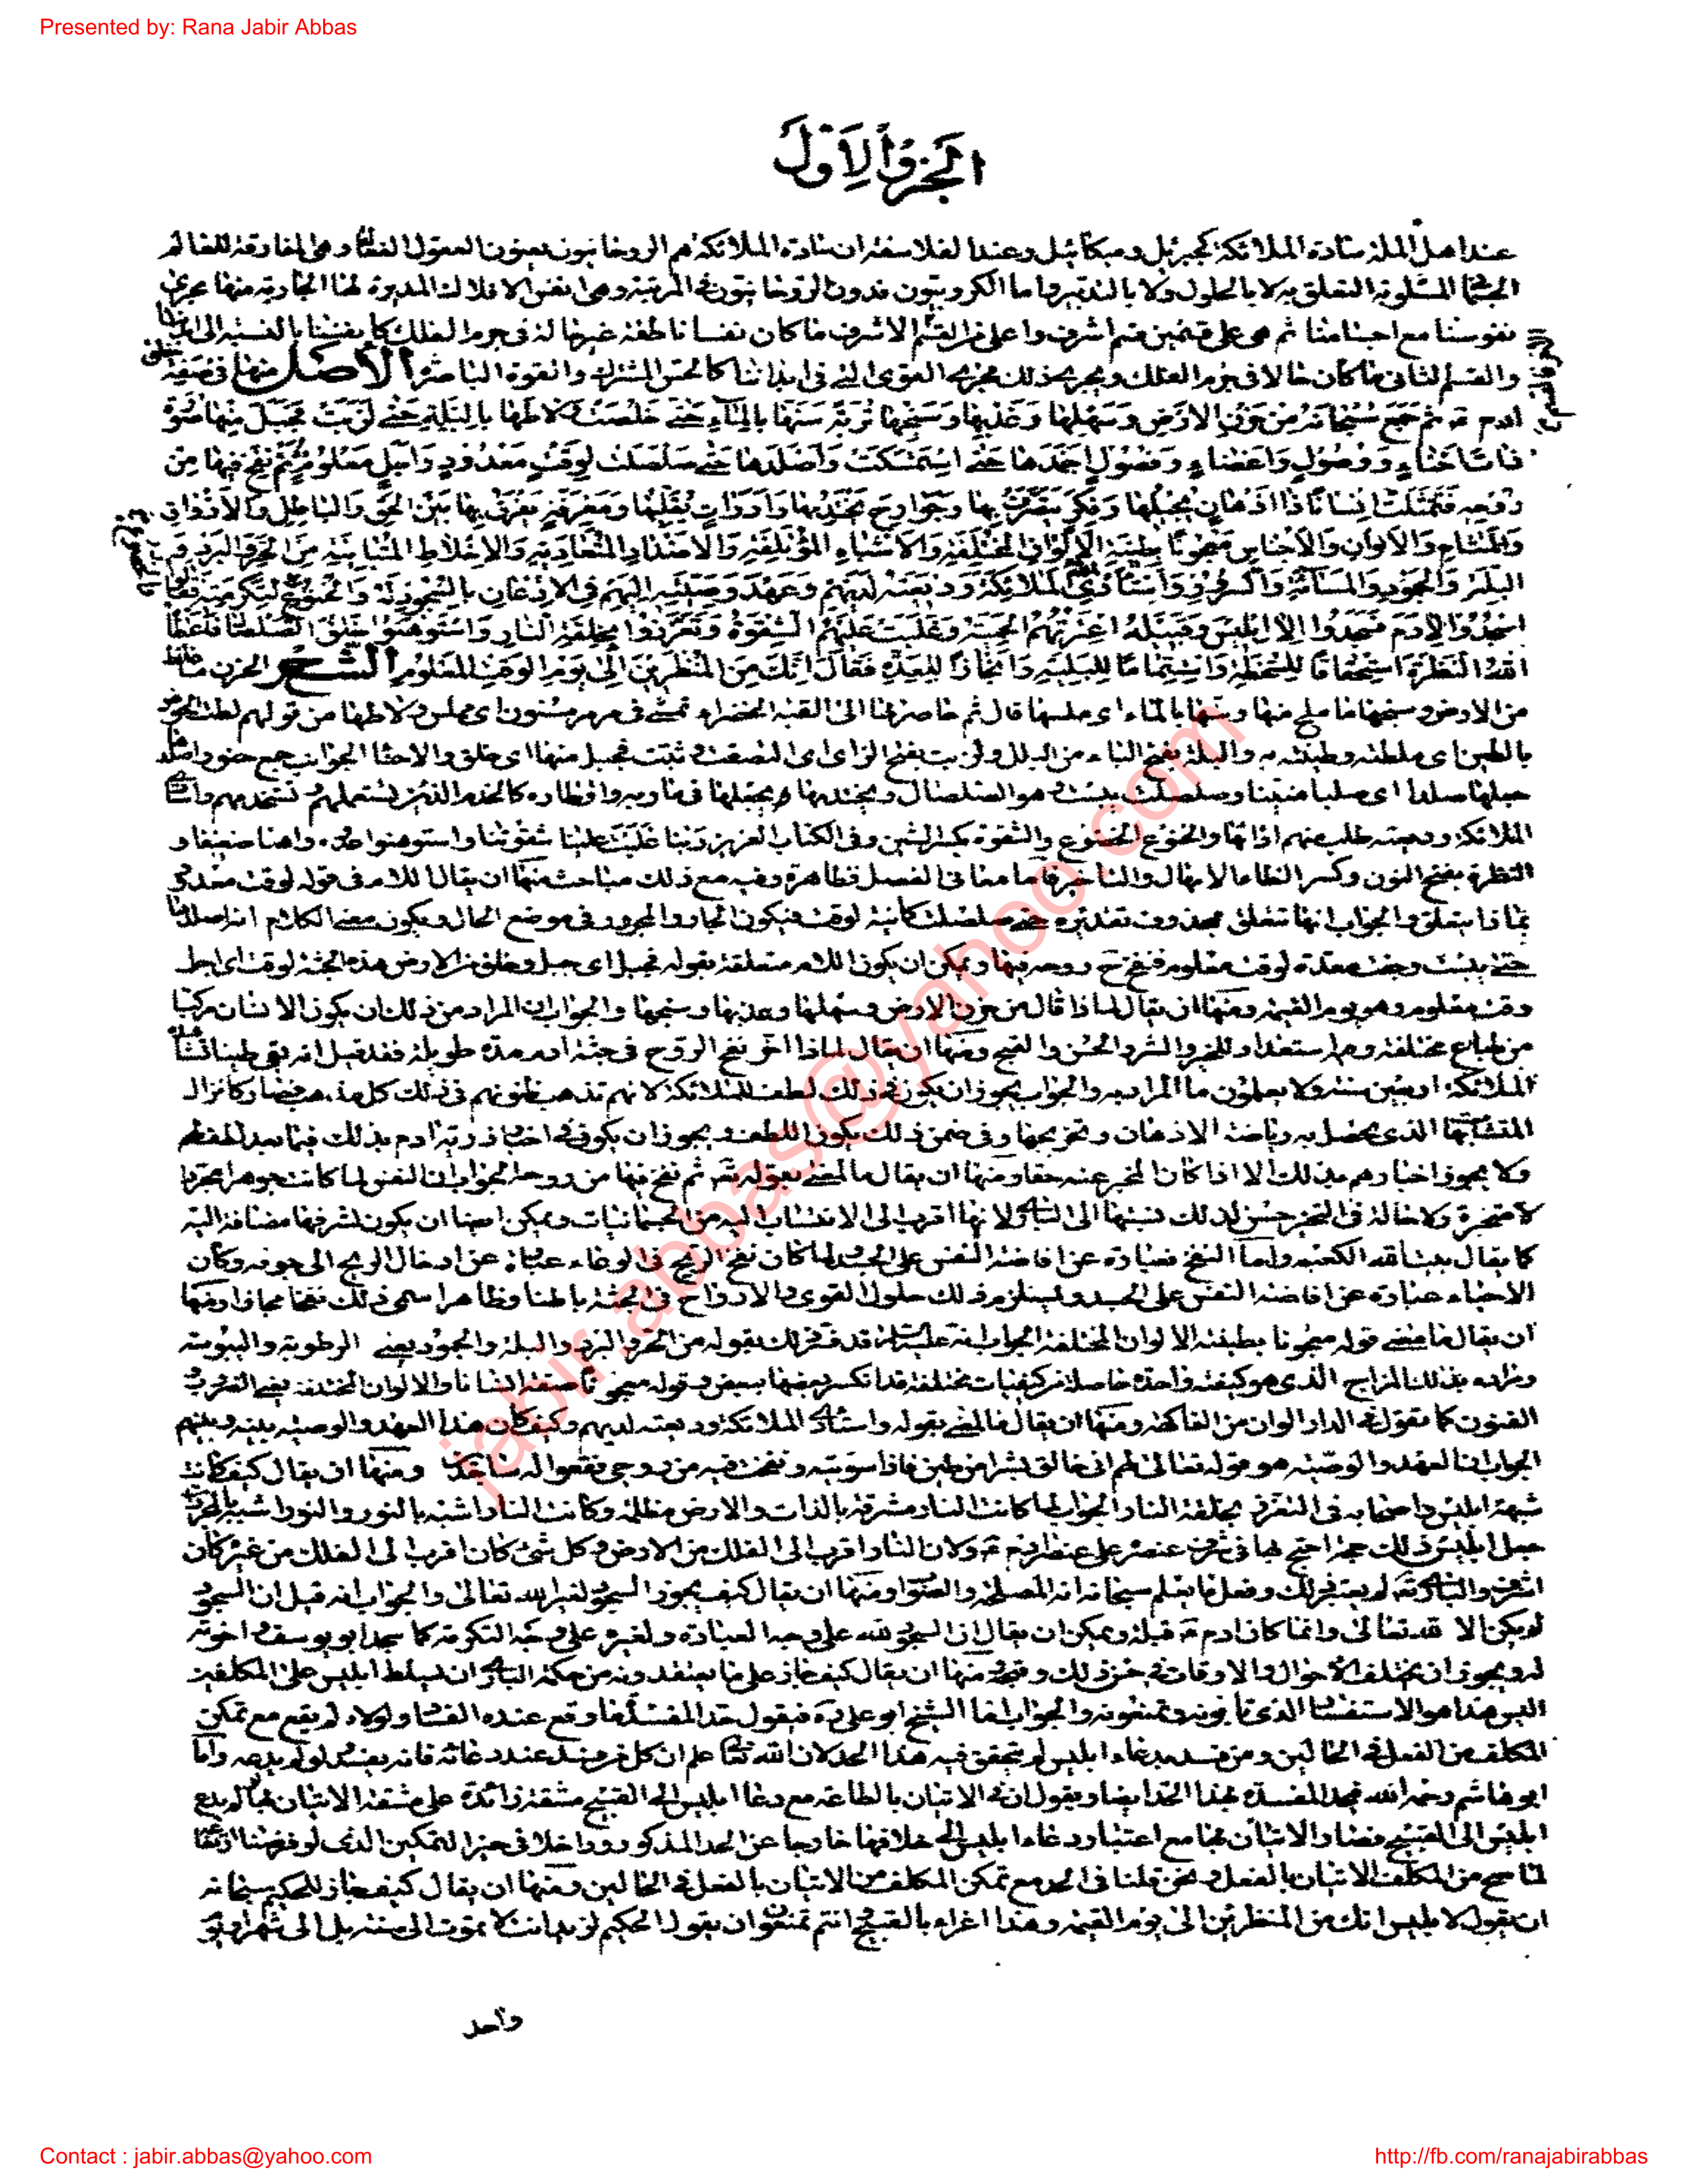 Presented by: Rana Jabir Abbas
الجزء الاول
عند اهل الملة سادة الملائكة كجبرئيل وميكائيل وعند الفلاسفة ان سادة الملائكة هم الروحانيون يعنون العقول الفعالة وهى المفارقة للعالم
الجسمانى المسلوبة التعلق به لا بالحلول ولا بالتدبير واما الكروبيون فدون الروحانيون فى المرتبة وهى انفس الافلاك المدبرة لها الجارية منها مجرى
نفوسنا مع اجسامنا ثم هى على قسمين قسم اشرف واعلى من القسم الاخر فالقسم الاشرف ما كان نفسا ناطقة غير حالة فى جرم الفلك كانفسنا بالنسبة الى ابداننا
والقسم الثانى ما كان حالا فى جرم الفلك ويجرى ذلك مجرى القوى التى فى ابداننا كالحس المشترك والقوة الباصرة الاصل منها فى صفة خلق
ادم ثم جمع سبحانه من حزن الارض وسهلها وعذبها وسبخها تربة سنها بالماء حتى خلصت ولاطها بالبلة حتى لزبت فجبل منها صورة
ذات احناء ووصول واعضاء وفصول اجمدها حتى استمسكت واصلدها حتى صلصلت لوقت معدود واجل معلوم ثم نفخ فيها من
روحه فتمثلت انسانا ذا اذهان يجيلها وفكر يتصرف بها وجوارح يختدمها وادوات يقلبها ومعرفة يفرق بها بين الحق والباطل والاذواق
والمشام والالوان والاجناس معجونا بطينة الالوان المختلفة والاشباه المؤتلفة والاضداد المتعادية والاخلاط المتباينة من الحر والبرد و
البلة والجمود والمساءة والسرور واستادى الملائكة وديعته لديهم وعهد وصيته اليهم فى الاذعان بالسجود له والخنوع لتكرمته فقال
اسجدوا لادم فسجدوا الا ابليس وقبيله اعترتهم الحمية وغلبت عليهم الشقوة وتعززوا بخلقة النار واستوهنوا خلق الصلصال فاعطاه
الله النظرة استحقاقا للسخطة واستتماما للبلية وانجازا للعدة فقال انك من المنظرين الى يوم الوقت المعلوم الشرح الحزن ما غلظ
من الارض وسبخها ما ملح منها وسنها بالماء اى ملسها قال ثم خاصرتها الى القبة الخضراء تمشى فى مرمر مسنون اى مملس ولاطها من قولهم لطت الحوض
بالطين اى ملطته وطينته به والبلة بفتح الباء من البلل ولزبت بفتح الزاى اى التصقت وثبتت فجبل منها اى خلق والاحناء الجوانب جمع حنو واصلدها
جعلها صلدا اى صلبا متينا وصلصلت يبست وهو الصلصال ويختدمها يجعلها فى مآربه واوطاره كالخدم الذين تستعملهم وتستخدمهم واستادى
الملائكة وديعته طلب منهم اداءها والخنوع الخضوع والشقوة بكسر الشين وفى الكتاب العزيز ربنا غلبت علينا شقوتنا واستوهنوا عدوه واهنا ضعيفا و
النظرة بفتح النون وكسر الظاء الامهال والتاخير فاما معانى الفصل فظاهرة وفيه مع ذلك مباحث منها ان يقال اللام فى قوله لوقت معدود
بماذا يتعلق والجواب انها تتعلق بمحذوف تقديره حتى صلصلت كائنة لوقت فيكون الجار والمجرور فى موضع الحال ويكون معنى الكلام انه اصلدها
حتى يبست وجفت معدة لوقت معلوم فنفخ حينئذ روحه فيها ويمكن ان يكون اللام متعلقة بقوله فجبل اى جبل وخلق من الارض هذه الجثة لوقت اى لاجل
وقت معلوم وهو يوم القيمة ومنها ان يقال لماذا قال من حزن الارض وسهلها وعذبها وسبخها والجواب ان المراد من ذلك ان يكون الانسان مركبا
من طباع مختلفة وفيه استعداد للخير والشر والحسن والقبيح ومنها ان يقال لماذا اخر نفخ الروح فى جثة ادم مدة طويلة فقد قيل انه بقى طينا تشاهده
الملائكة اربعين سنة ولا يعلمون ما المراد به والجواب يجوز ان يكون فى ذلك لطف للملائكة لانهم تذهب ظنونهم فى ذلك كل مذهب فصار كانزال
المتشابهات الذى يحصل به رياضة الاذهان وتخريجها وفى ضمن ذلك يكون اللطف ويجوز ان يكون فى اخبار ذرية ادم بذلك فيما بعد لطف لهم
ولا يجوز اخبارهم بذلك الا اذا كان المخبر عنه حقا ومنها ان يقال ما المعنى بقوله ثم نفخ فيها من روحه الجواب ان النفس لما كانت جوهرا مجردا
لا متحيزة ولا حالة فى المتحيز حسن لذلك نسبتها الى البارى لانها اقرب الى الانتساب اليه من الجثمانيات ويمكن ايضا ان يكون لشرفها مضافة اليه
كما يقال بيت الله الكعبة واما النفخ فعبارة عن افاضة النفس على الجسد ولما كان نفخ الريح فى الوعاء عبارة عن ادخال الريح الى جوفه وكان
الاحياء عبارة عن افاضة النفس على الجسد ويستلزم ذلك حلول القوى والارواح فى الجثة باطنا وظاهرا سمى ذلك نفخا مجازا ومنها
ان يقال ما معنى قوله معجونا بطينة الالوان المختلفة الجواب انه عليه السلام قد فسر ذلك بقوله من الحر والبرد والبلة والجمود يعنى الرطوبة واليبوسة
ومراده بذلك المزاج الذى هو كيفية واحدة حاصلة من كيفيات مختلفة قد انكسر بعضها ببعض وقوله معجونا صفة انسانا والالوان المختلفة يعنى الضروب
الفنون كما تقول فى الدار الوان من الفاكهة ومنها ان يقال ما المعنى بقوله واستادى الملائكة وديعته لديهم وكيف كان هذا العهد والوصية بينه وبينهم
الجواب ان العهد والوصية هو قوله تعالى لهم انى خالق بشرا من طين فاذا سويته ونفخت فيه من روحى فقعوا له ساجدين ومنها ان يقال كيف كانت
شبهة ابليس واصحابه فى التعزز بخلقة النار الجواب لما كانت النار مشرقة بالذات والارض مظلمة وكانت النار اشبه بالنور والنور اشبه بالمجردات
جعل ابليس ذلك حجة احتج بها فى شرف عنصره على عنصر ادم ع ولان النار اقرب الى الفلك من الارض وكل شئ كان اقرب الى الفلك من غيره كان
اشرف والبارى تعالى لم يعتبر ذلك وفعل ما يعلم سبحانه انه المصلحة والصواب ومنها ان يقال كيف يجوز السجود لغير الله تعالى والجواب انه قيل ان السجود
لم يكن الا لله تعالى وانما كان ادم ع قبلة ويمكن ان يقال ان السجود لله على وجه العبادة ولغيره على وجه التكرمة كما سجد ابو يوسف واخوته
له ويجوز ان تختلف الاحوال والاوقات فى حسن ذلك وقبحه ومنها ان يقال كيف جاز على ما تعتقدونه من حكمة البارى ان يسلط ابليس على المكلفين
اليس هذا هو الاستفساد الذى تابونه وتمنعونه والجواب اما الشيخ ابو على ره فيقول حد المفسدة ما وقع عنده الفساد ولولاه لم يقع مع تمكن
المكلف من الفعل فى الحالين ومن فسد بدعاء ابليس لم يتحقق فيه هذا الحد لان الله تعالى علم ان كل من فسد عند دعائه فانه يفسد لو لم يدعه واما
ابو هاشم رحمه الله فيحد المفسدة بهذا الحد ايضا ويقول ان فى الاتيان بالطاعة مع دعاء ابليس الى القبيح مشقة زائدة على مشقة الاتيان بها لو لم يدع
ابليس الى القبيح فصار الاتيان بها مع اعتبار دعاء ابليس الى خلافها خارجا عن الحد المذكور وداخلا فى حيز التمكين الذى لو فرضنا ارتفاعه
لما صح من المكلف الاتيان بالفعل ونحن قلنا فى الحد مع تمكن المكلف من الاتيان بالفعل فى الحالين ومنها ان يقال كيف جاز للحكيم سبحانه
ان يقول لابليس انك من المنظرين الى يوم القيمة وهذا اغراء بالقبيح وانتم تمنعون ان يقول الحكيم لزيد انت لا تموت الى سنة بل الى شهر او يوم
واحد
jabir.abbas@yahoo.com
Contact : jabir.abbas@yahoo.com
http://fb.com/ranajabirabbas